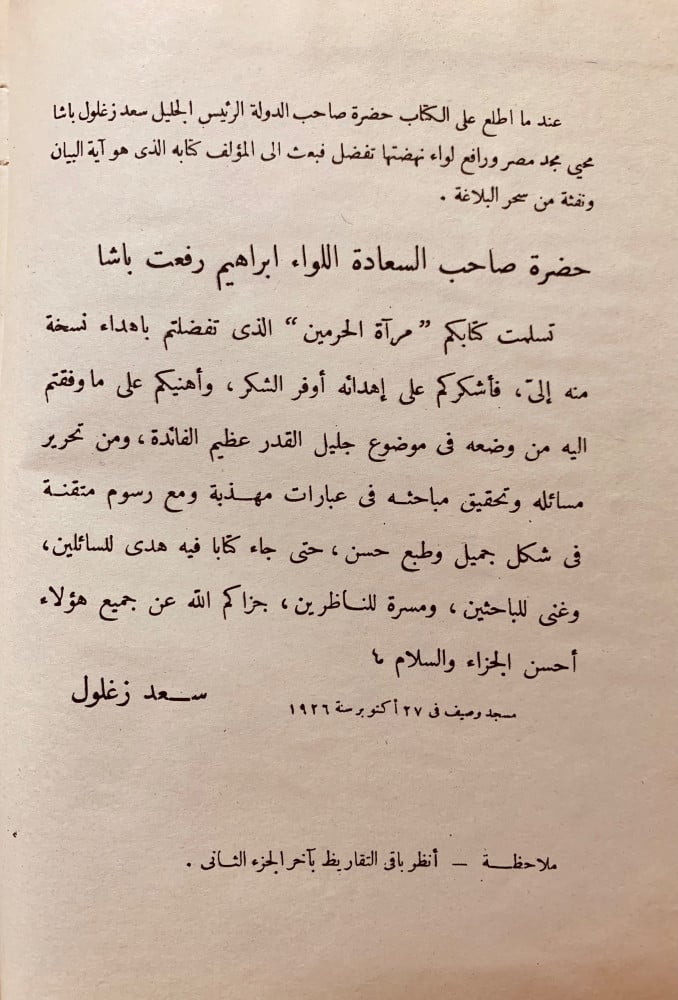 عند ما اطلع على الكتاب حضرة صاحب الدولة الرئيس الجليل سعد زغلول باشا
محيي مجد مصر ورافع لواء نهضتها تفضل فبعث الى المؤلف كتابه الذى هو آية البيان
ونفثة من سحر البلاغة .
حضرة صاحب السعادة اللواء ابراهيم رفعت باشا
تسلمت كتابكم ”مرآة الحرمين“ الذى تفضلتم باهداء نسخة
منه إلىّ، فأشكركم على إهدائه أوفر الشكر، وأهنيكم على ما وفقتم
اليه من وضعه فى موضوع جليل القدر عظيم الفائدة، ومن تحرير
مسائله وتحقيق مباحثه فى عبارات مهذبة ومع رسوم متقنة
فى شكل جميل وطبع حسن، حتى جاء كتابا فيه هدى للسائلين،
وغنى للباحثين، ومسرة للناظرين، جزاكم الله عن جميع هؤلاء
أحسن الجزاء والسلام ؛
مسجد وصيف فى ٢٧ أكتوبر سنة ١٩٢٦
سعد زغلول
ملاحظة — أنظر باقى التقاريظ بآخر الجزء الثانى .